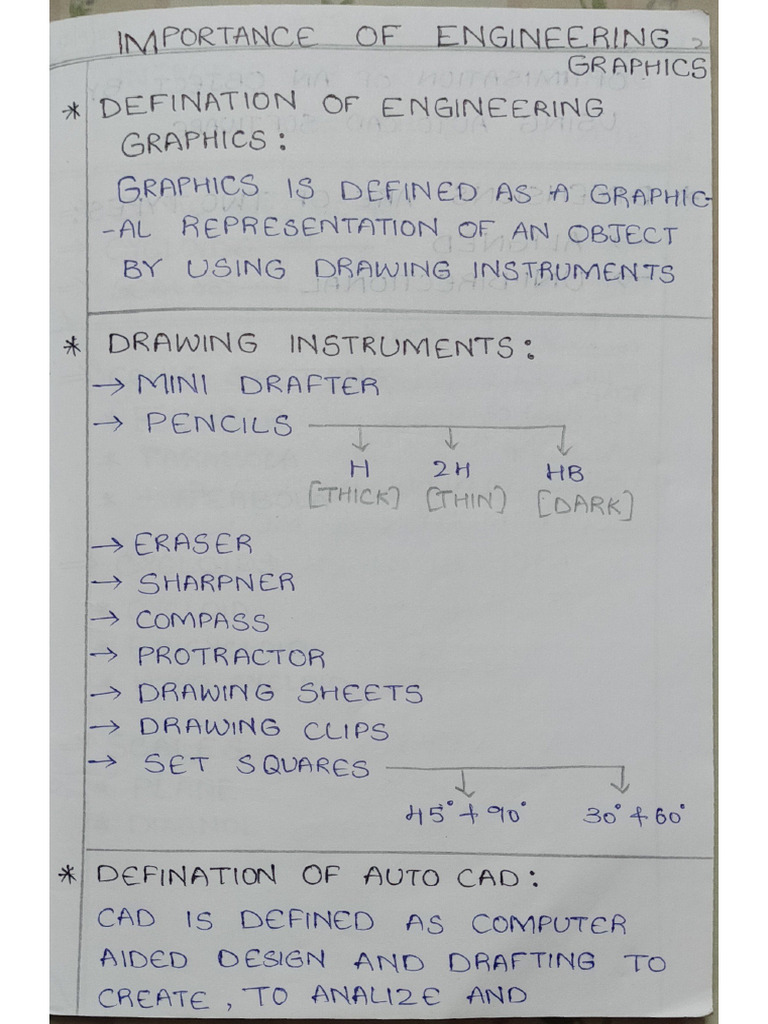 IMPORTANCE OF ENGINEERING
GRAPHICS
* DEFINATION OF ENGINEERING
GRAPHICS :
GRAPHICS IS DEFINED AS A GRAPHIC-
-AL REPRESENTATION OF AN OBJECT
BY USING DRAWING INSTRUMENTS
* DRAWING INSTRUMENTS :
→ MINI DRAFTER
→ PENCILS
H 2H HB
[THICK] [THIN] [DARK]
→ ERASER
→ SHARPNER
→ COMPASS
→ PROTRACTOR
→ DRAWING SHEETS
→ DRAWING CLIPS
→ SET SQUARES
45° + 90° 30° + 60°
* DEFINATION OF AUTO CAD :
CAD IS DEFINED AS COMPUTER
AIDED DESIGN AND DRAFTING TO
CREATE, TO ANALIZE AND